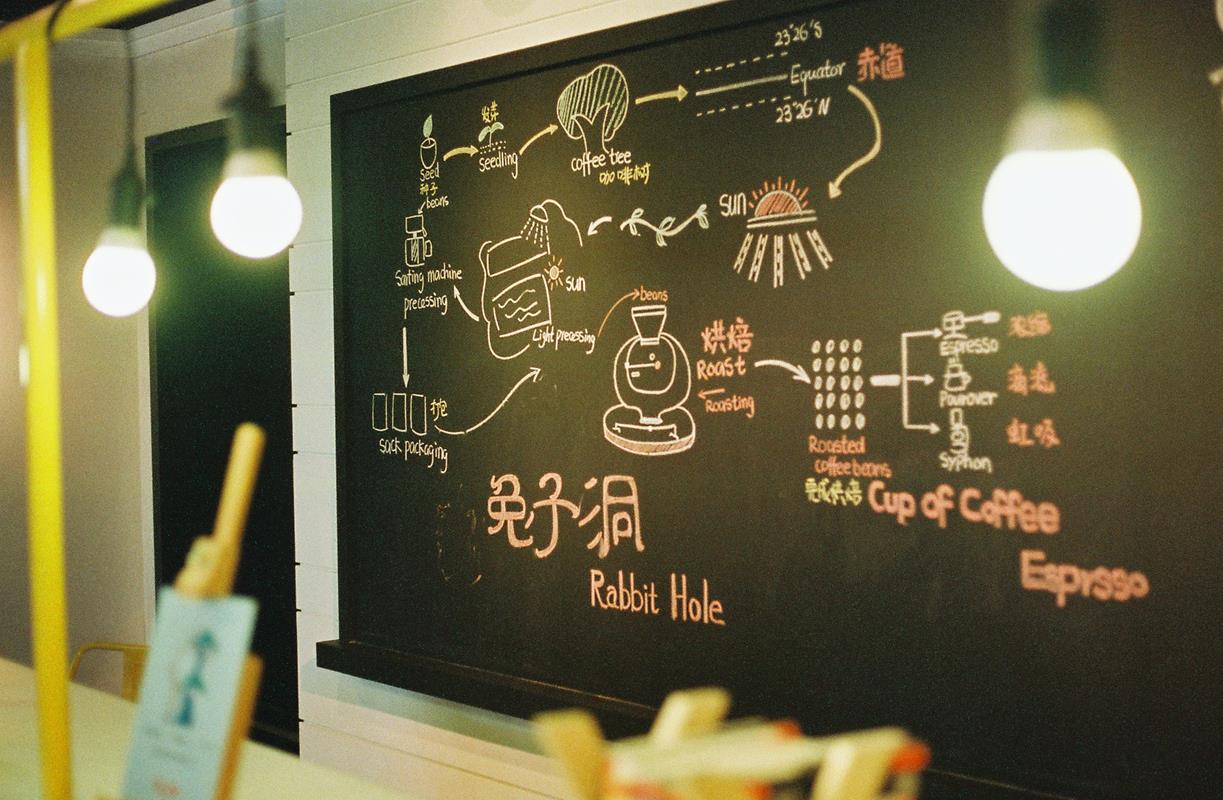 Seed
种子
beans
发芽
seedling
coffee tree
咖啡树
23°26'S
Equator 赤道
23°26'N
sun
sun
Light precessing
Santing machine
precessing
打包
sack packaging
beans
烘焙
Roast
Roasting
Roasted
coffee beans
完成烘焙
Espresso
浓缩
Pourover
Syphon
虹吸
Cup of Coffee
Esprsso
兔子洞
Rabbit Hole